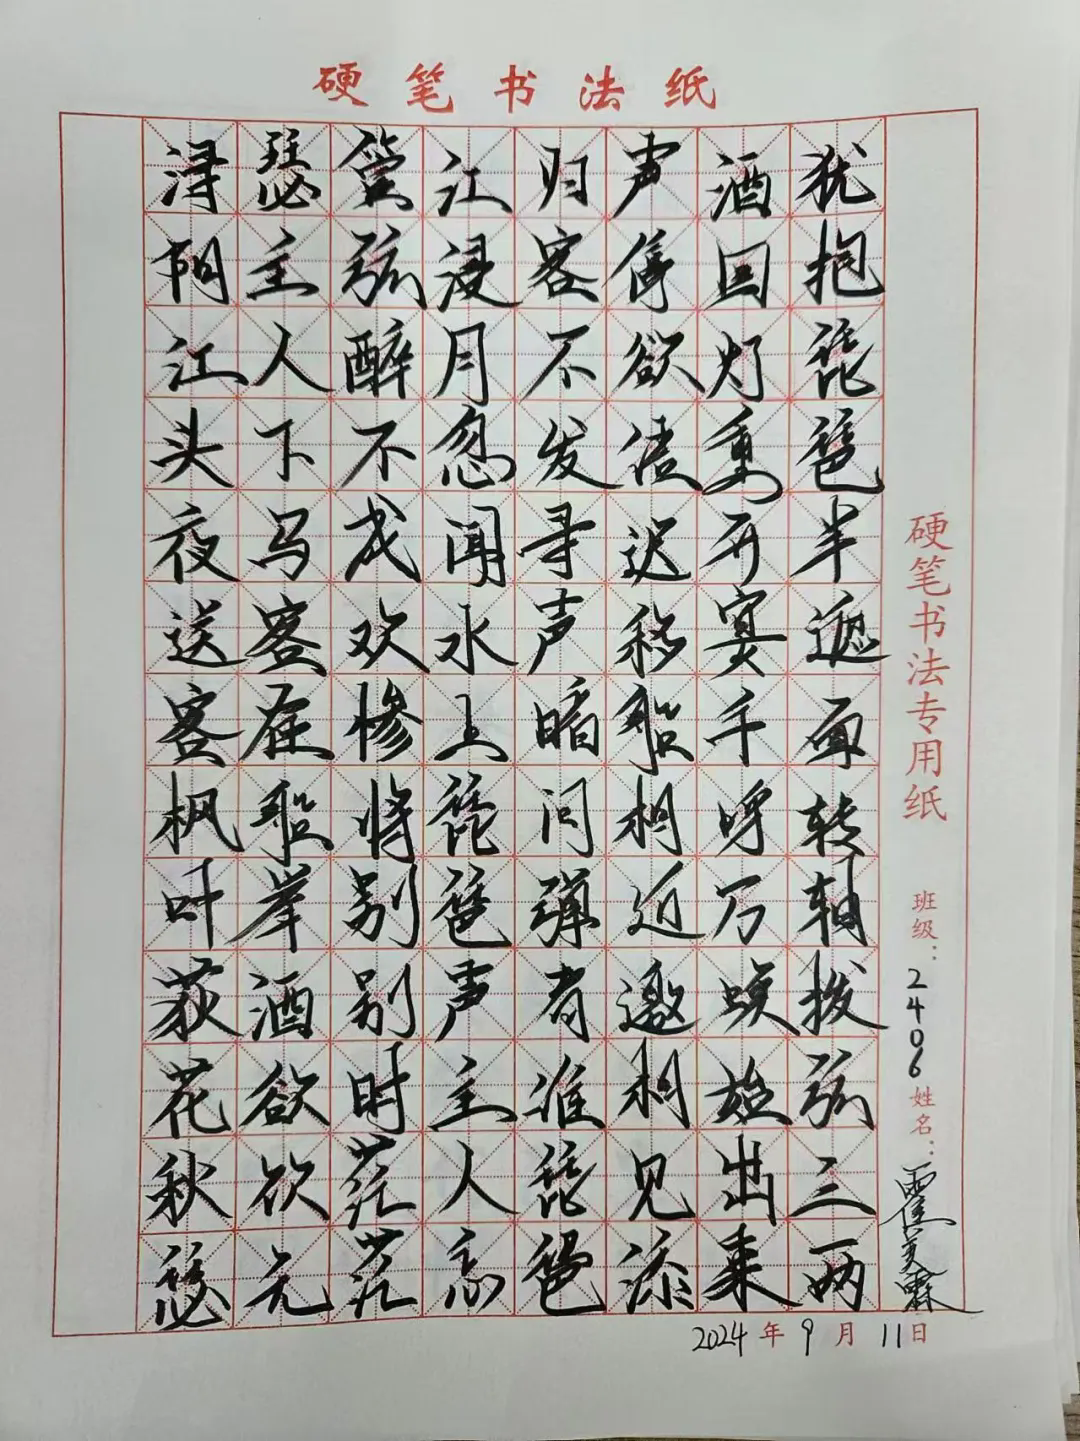 硬笔书法纸
浔阳江头夜送客枫叶荻花秋瑟
瑟主人下马客在船举酒欲饮无
管弦醉不成欢惨将别别时茫茫
江浸月忽闻水上琵琶声主人忘
归客不发寻声暗问弹者谁琵琶
声停欲语迟移船相近邀相见添
酒回灯重开宴千呼万唤始出来
犹抱琵琶半遮面转轴拨弦三两
硬笔书法专用纸 班级：2406 姓名：霍美霖
2024年9月11日